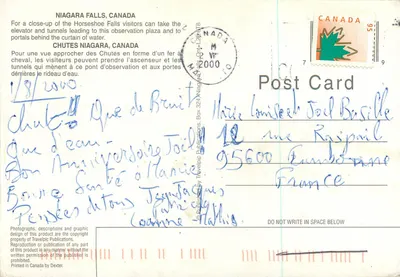 NIAGARA FALLS, CANADA
For a close-up of the Horseshoe Falls visitors can take the
elevator and tunnels leading to this observation plaza and to
portals behind the curtain of water.
CHUTES NIAGARA, CANADA
Pour une vue approcher des Chutes en forme d'un fer à
cheval, les visiteurs peuvent prendre l'ascenseur et les
tunnels qui mènent à ce point d'observation et aux portes
derrière le rideau d'eau.
CANADA
95
CANADA
M
2000
Post Card
1/8/2000
Chut! Que de Bruit
Que d'eau
Bon Anniversaire Joël
Bonne Santé à
Pensées de tous
Marie Louise et Joël
12 rue Raspail
95600 Eaubonne
France
DO NOT WRITE IN SPACE BELOW
Photographs, descriptive and graphic
design of this product are the copyright
property of Travelpic Publications.
Reproduction or publication of any
part of this product in any form
without written permission is prohibited.
Printed in Canada by Dexter